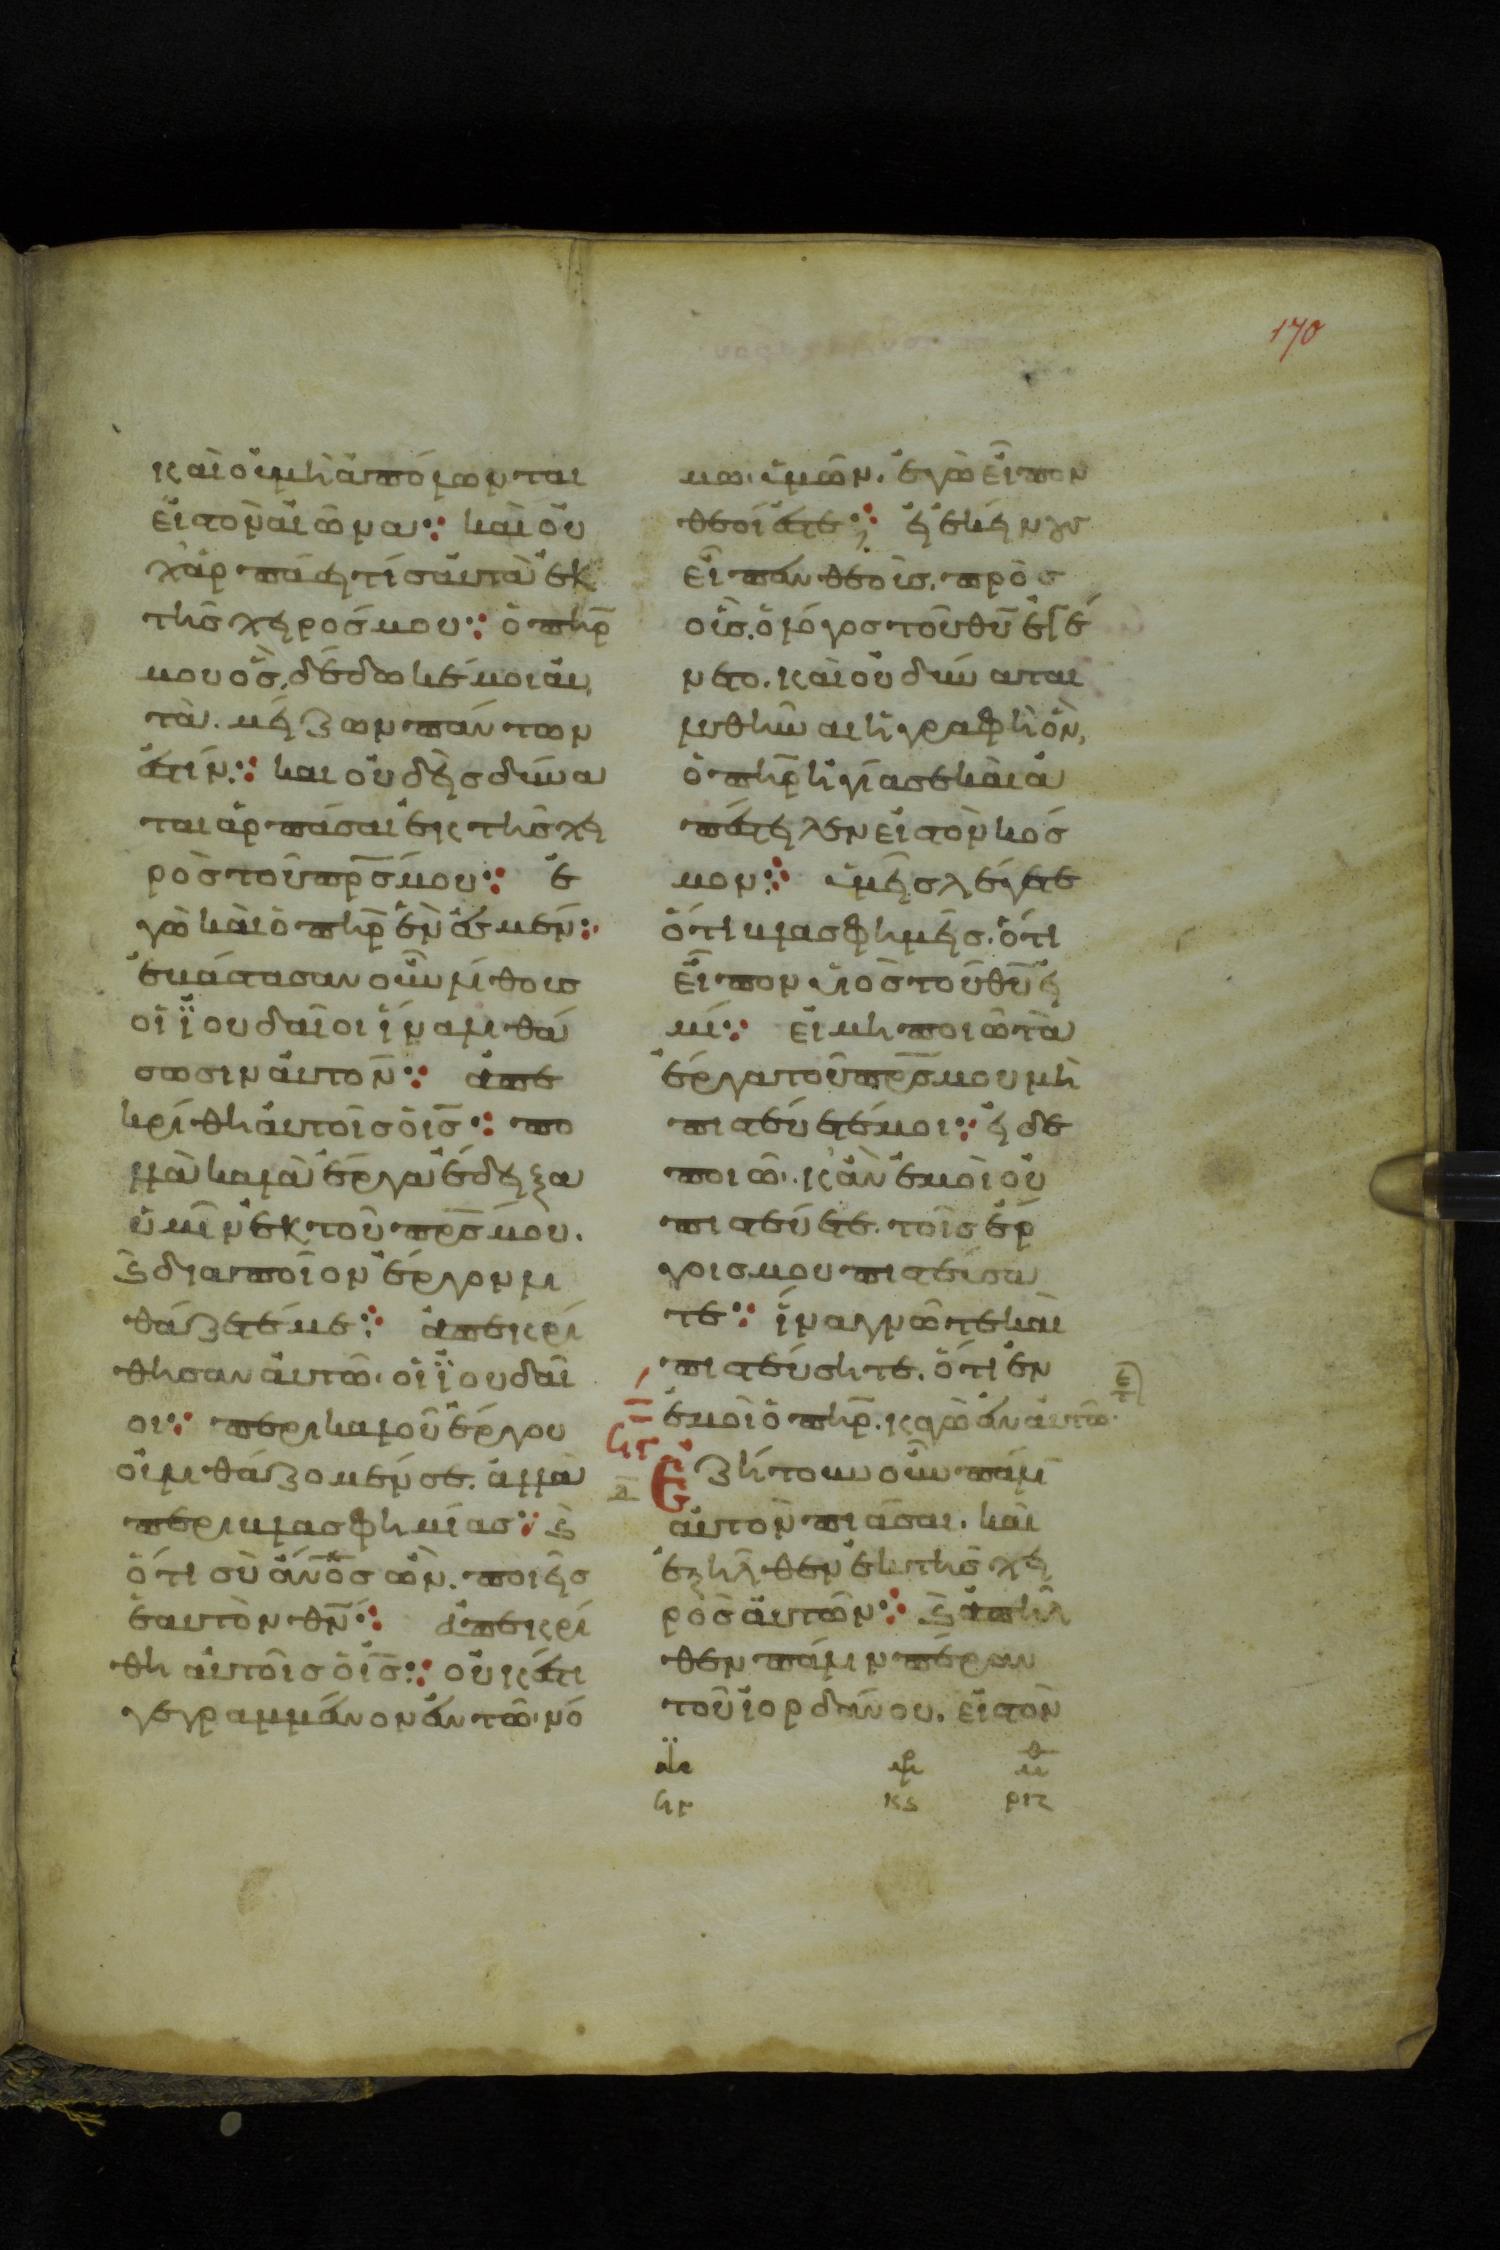 170
καὶ οὐ μὴ ἀπόλωνται
εἰς τὸν αἰῶνα⁘ καὶ οὐ
χ' ἁρπάσει τίς αὐτὰ ἐκ
τῆς χειρός μου⁘ ὁ π̅η̅ρ̅
μου ὃς, δέδωκέ μοι αὐ
τὰ. μείζων πάντων
ἐστίν⁘ και οὐδεὶς δύνα
ται ἁρπάσαι ἐκ τῆς χει
ρὸς τοῦ π̅ρ̅ς̅ μου⁘ ἐ
γὼ καὶ ὁ π̅η̅ρ̅ ἕν ἐσμεν⁘
ἐβάστασαν οὖν λίθους
οἱ ϊουδαῖοι ἵνα λιθά
σωσιν αὐτόν⁘ ἀπε
κρίθη αὐτοῖς ὁ ι̅ς̅⁘ πο
λλὰ καλὰ ἔργα ἔδειξα
ὑμῖν ἐκ τοῦ π̅ρ̅ς̅ μου.
ϗ δια ποῖον ἔργον λι
θάζετέ με⁘ ἀπεκρί
θησαν αὐτῶ· οἱ ϊουδαῖ
οι⁘ περι καλοῦ ἔργου
οὐ λιθάζομέν σε. ἀλλὰ
περι βλασφημίας⁘ ϗ
ὅτι σὺ ἄν̅ο̅ς̅ ὢν. ποιεῖς
ἑαυτὸν θ̅ν̅⁘ ἀπεκρί
θη αὐτοῖς ὁ ι̅ς̅⁘ οὐκ ἔστι
γεγραμμένον ἐν τῶ· νό
μω· ὑμῶν. ἐγὼ εἶπον
θεοί ἐστε⁘ εἰ ἐκείνους
εἶπεν θεοὺς. πρὸς
οὓς. ὁ λόγος τοῦ θ̅υ̅ ἐγέ
νετο. καὶ οὐ δύναται
λυθῆναι ἡ γραφὴ ὃν,
ὁ π̅η̅ρ̅ ἡγίασε καὶ ἀ
πέστειλεν εἰς τὸν κόσ
μον⁘ ὑμεῖς λέγετε
ὅτι βλασφημεῖς. ὅτι
εἶπον υἱὸς τοῦ θ̅υ̅ εἰ
μί⁘ εἰ μη ποιῶ τὰ
ἔργα τοῦ π̅ρ̅ς̅ μου μὴ
πιστεύετέ μοι⁘ εἰ δε
ποιῶ·. κ' ἂν ἐμοὶ οὐ
πιστεύετε. τοῖς ἔρ
γοις μου πιστεύσα
τε⁘ ἵνα γνῶτε καὶ
πιστεύσητε. ὅτι ἐν
ἐμοὶ ὁ π̅η̅ρ̅. καγὼ ἐν αὐτῶ·
Ἐζήτουν οὖν πάλι
αὐτὸν πιᾶσαι. καὶ
ἐξῆλθεν ἐκ τῆς χει
ρὸς αὐτῶν⁘ ϗ ἀπῆλ
θεν πάλιν πέραν
τοῦ ἰορδάνου. εἰς τὸν